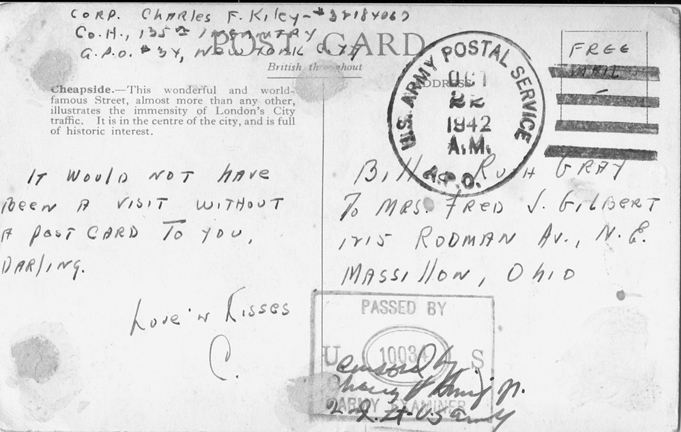 CORP. CHARLES F. KILEY-#32184067
CO. H., 135TH INFANTRY
A.P.O. #34, NEW YORK CITY
POST CARD
British throughout
Cheapside.—This wonderful and world-
famous Street, almost more than any other,
illustrates the immensity of London's City
traffic. It is in the centre of the city, and is full
of historic interest.
IT WOULD NOT HAVE
BEEN A VISIT WITHOUT
A POST CARD TO YOU,
DARLING.
LOVE 'N KISSES
C.
ADDRESS
U.S. ARMY POSTAL SERVICE
OCT
22
1942
A.M.
A.P.O.
FREE
MAIL
BILLEE RUTH GRAY
TO MRS. FRED J. GILBERT
1215 RODMAN AV., N.E.
MASSILLON, OHIO
PASSED BY
U 10034 S
ARMY EXAMINER
Censored by
Jr.
2nd Lt US Army